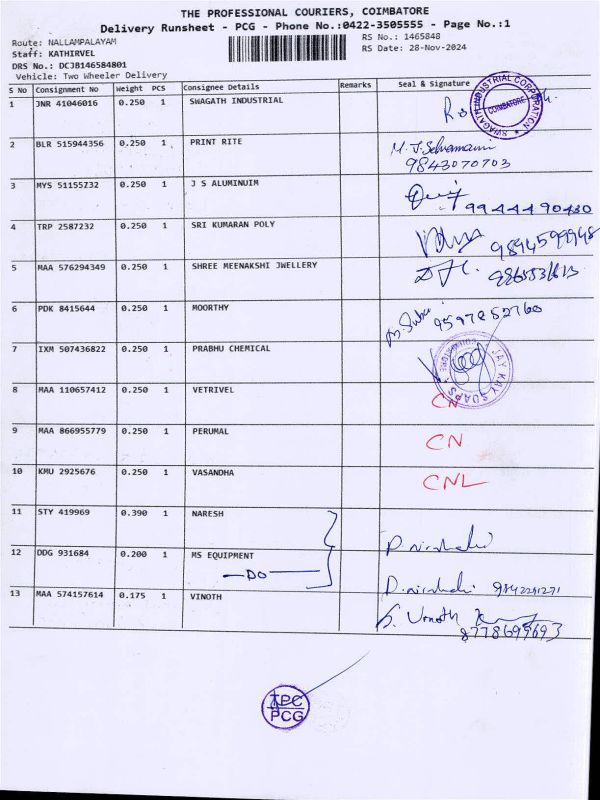 THE PROFESSIONAL COURIERS, COIMBATORE
Delivery Runsheet - PCG - Phone No.:0422-3505555 - Page No.:1
Route: NALLAMPALAYAM
RS No.: 1465848
Staff: KATHIRVEL
RS Date: 28-Nov-2024
DRS No.: DCJB146584801
Vehicle: Two Wheeler Delivery
S No Consignment No Weight PCS Consignee Details Remarks Seal & Signature
1 JNR 41046016 0.250 1 SWAGATH INDUSTRIAL
SWAGATH INDUSTRIAL CORPORATION
COIMBATORE
2 BLR 515944356 0.250 1 PRINT RITE
9843070703
3 MYS 51155732 0.250 1 J S ALUMINUIM
9944490430
4 TRP 2587232 0.250 1 SRI KUMARAN POLY
5 MAA 576294349 0.250 1 SHREE MEENAKSHI JWELLERY
6 PDK 8415644 0.250 1 MOORTHY
9597852760
7 IXM 507436822 0.250 1 PRABHU CHEMICAL
JAY KAY SOAPS
COIMBATORE
8 MAA 110657412 0.250 1 VETRIVEL CN
9 MAA 866955779 0.250 1 PERUMAL CN
10 KMU 2925676 0.250 1 VASANDHA CNL
11 STY 419969 0.390 1 NARESH
12 DDG 931684 0.200 1 MS EQUIPMENT
DO
13 MAA 574157614 0.175 1 VINOTH S. Vinoth
8778699693
TPC
PCG